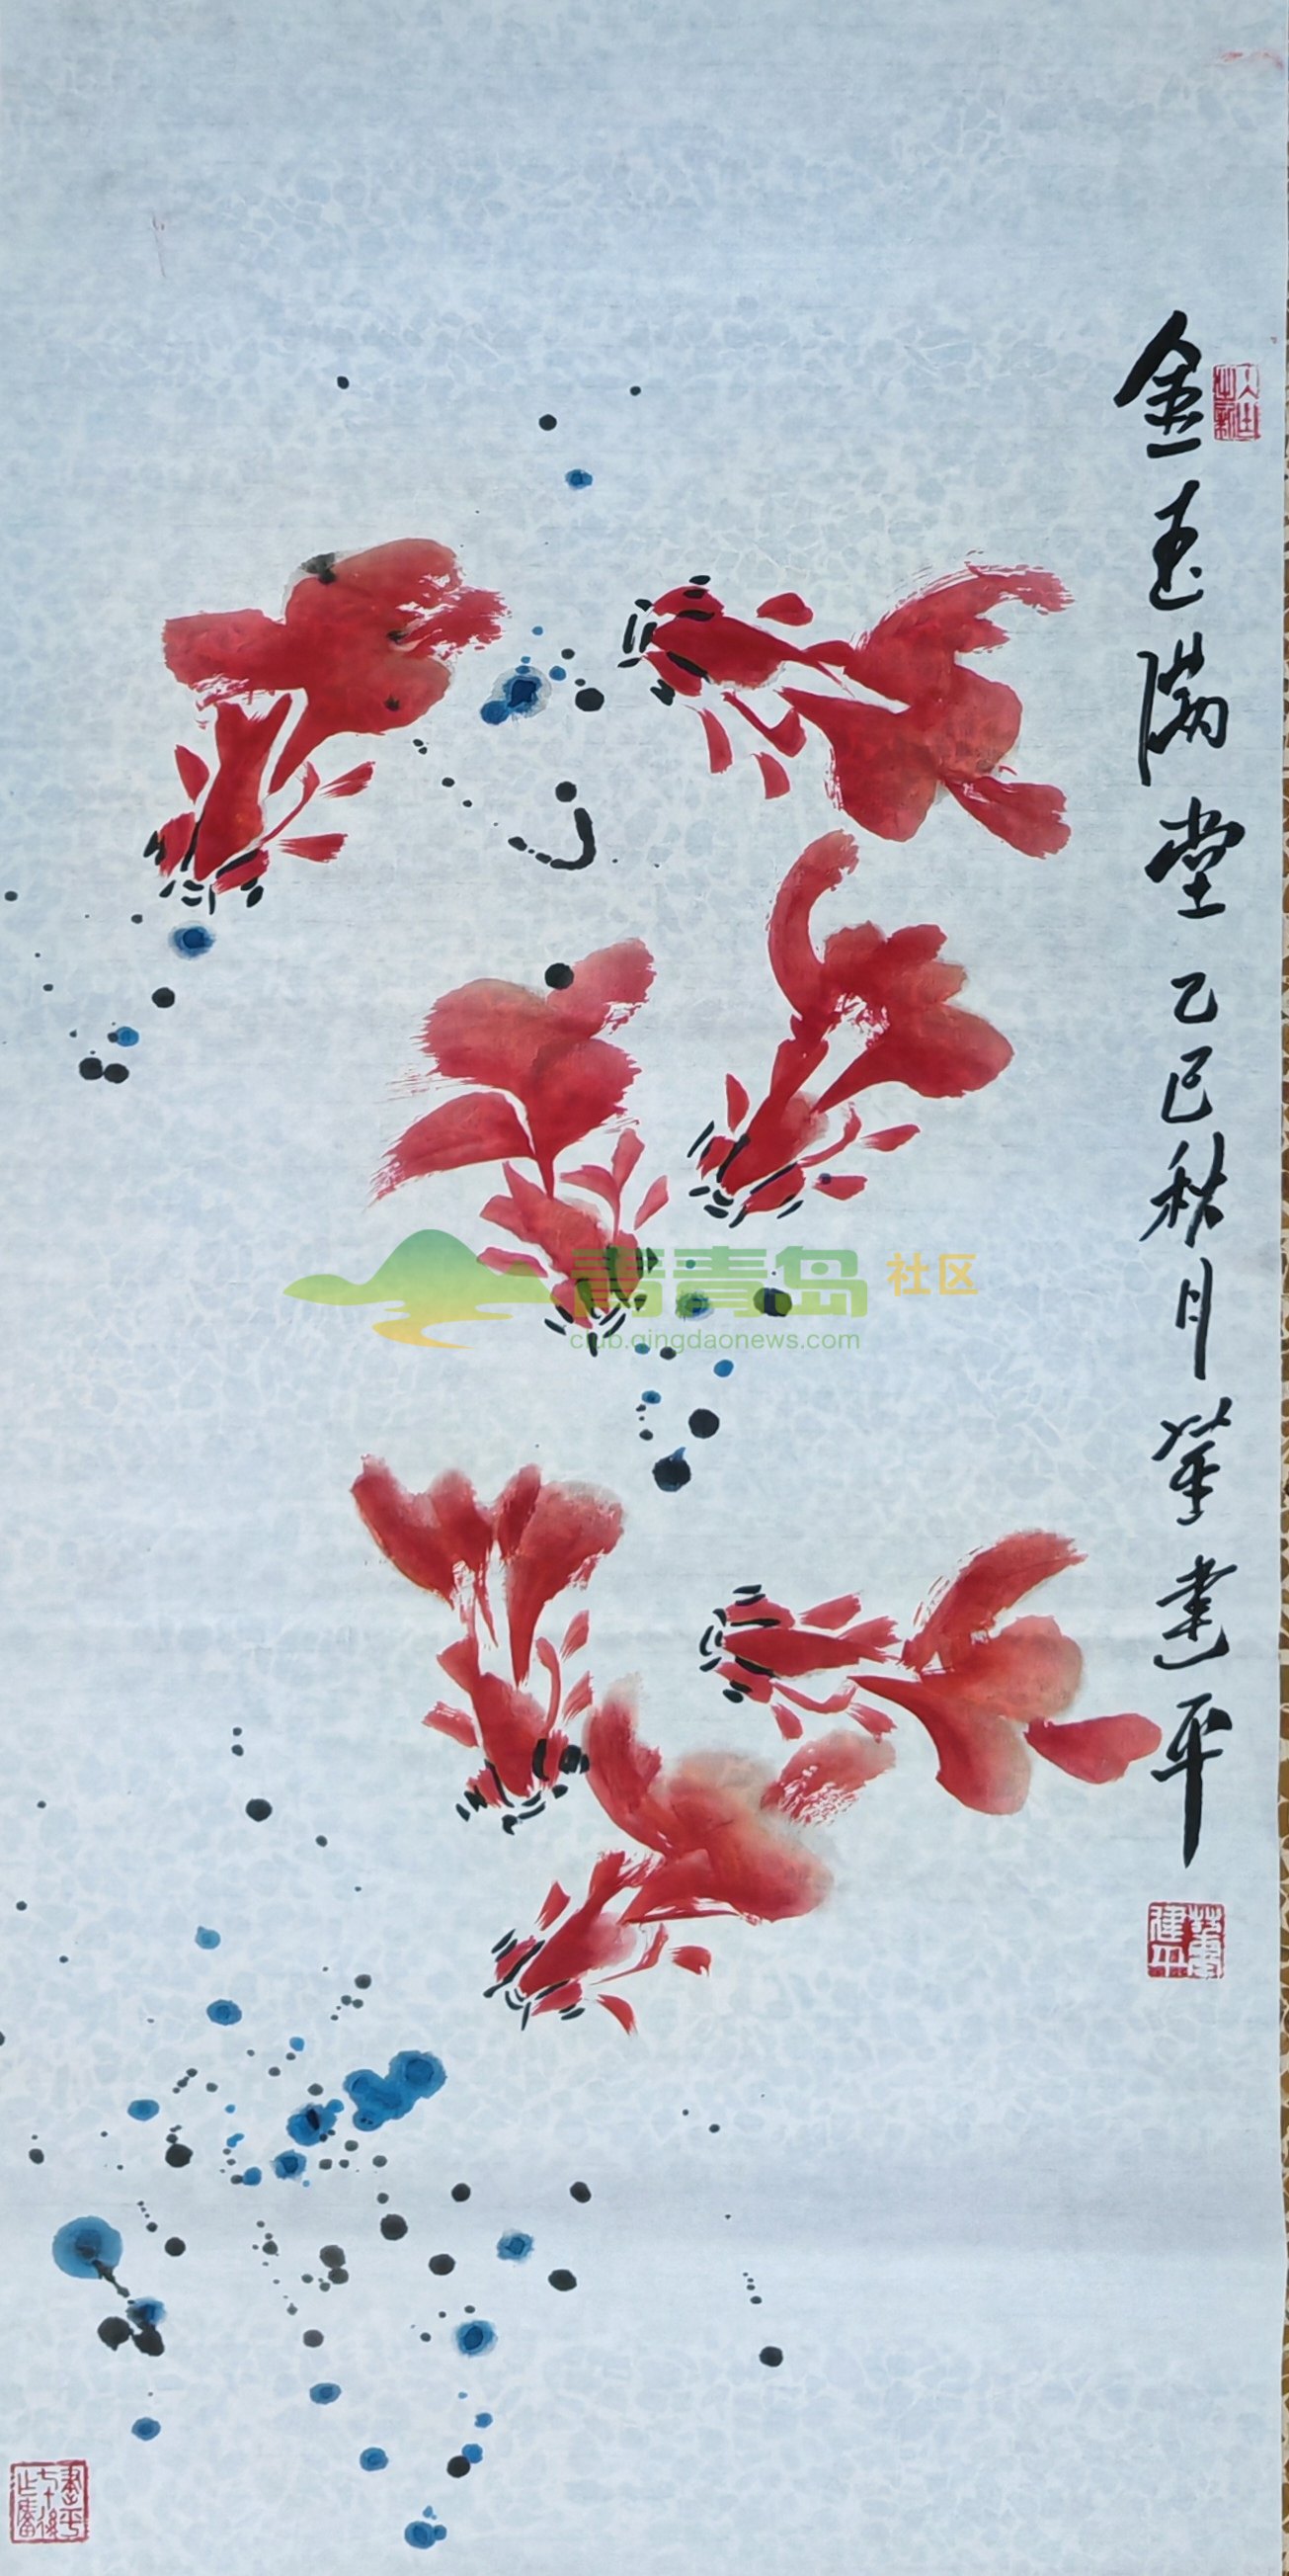 金玉满堂 乙巳秋月 萧建平
萧建平
青青岛社区
club.qingdaonews.com